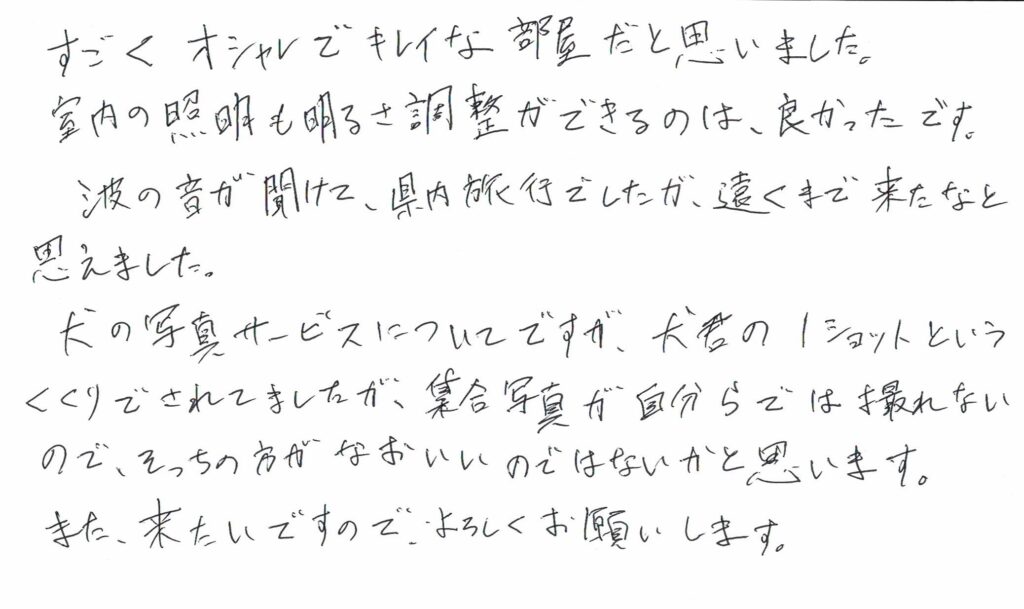 すごく オシャレでキレイな 部屋だと思いました。
室内の照明も明るさ調整ができるのは、良かったです。
波の音が聞けて、県内旅行でしたが、遠くまで来たなと
思えました。
犬の写真サービスについてですが、犬君の1ショットという
くくりでされてましたが、集合写真が自分らでは撮れない
ので、そっちの方がなおいいのではないかと思います。
また、来たいですので、よろしくお願いします。